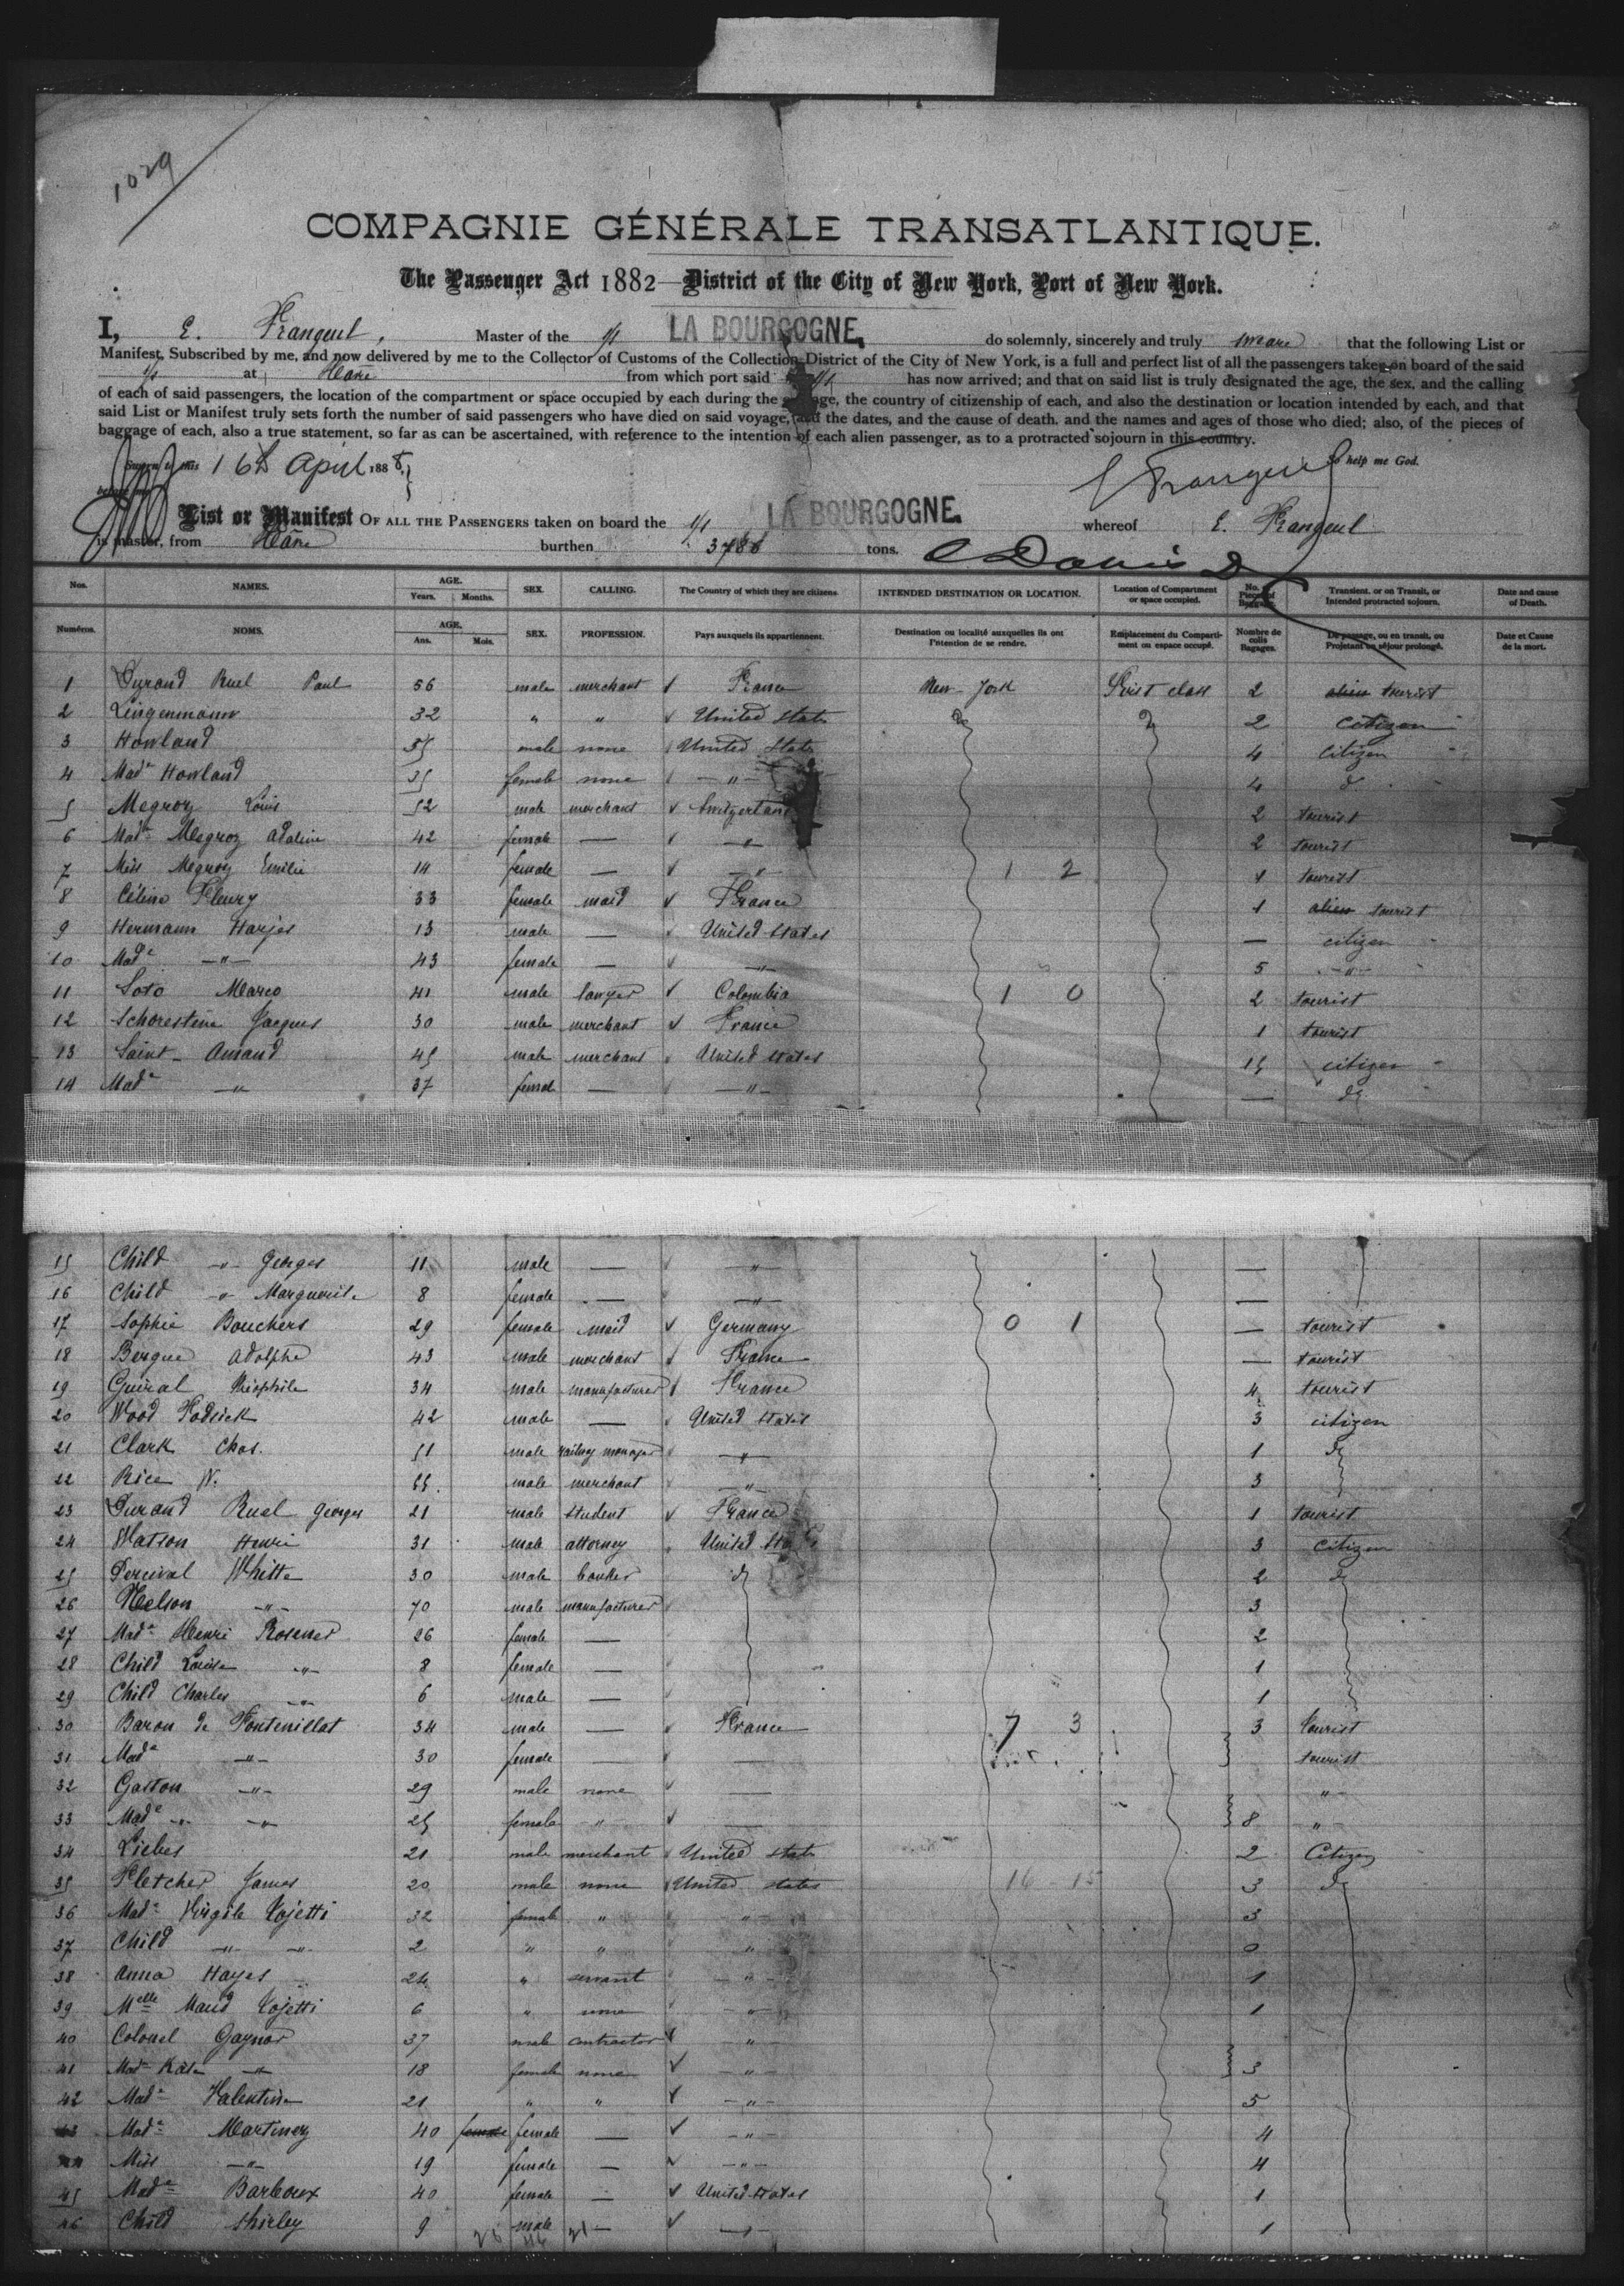 1029
COMPAGNIE GÉNÉRALE TRANSATLANTIQUE.
The Passenger Act 1882—District of the City of New York, Port of New York.
I, E. Frangeul, Master of the s/s LA BOURGOGNE, do solemnly, sincerely and truly swear that the following List or
Manifest, Subscribed by me, and now delivered by me to the Collector of Customs of the Collection District of the City of New York, is a full and perfect list of all the passengers taken on board of the said
s/s at Havre from which port said s/s has now arrived; and that on said list is truly designated the age, the sex, and the calling
of each of said passengers, the location of the compartment or space occupied by each during the voyage, the country of citizenship of each, and also the destination or location intended by each, and that
said List or Manifest truly sets forth the number of said passengers who have died on said voyage, and the dates, and the cause of death. and the names and ages of those who died; also, of the pieces of
baggage of each, also a true statement, so far as can be ascertained, with reference to the intention of each alien passenger, as to a protracted sojourn in this country.
16th April 1888. So help me God.
E Frangeul
List or Manifest OF ALL THE PASSENGERS taken on board the s/s LA BOURGOGNE. whereof E. Frangeul
is master, from Havre burthen 3786 tons.
Nos. NAMES. AGE. Years. Months. SEX. CALLING. The Country of which they are citizens INTENDED DESTINATION OR LOCATION. Location of Compartment or space occupied. No. Pieces of Baggage. Transient. or on Transit, or Intended protracted sojourn. Date and cause of Death.
Numéros. NOMS. AGE. Ans. Mois. SEX. PROFESSION. Pays auxquels ils appartiennent. Destination ou localité auxquelles ils ont l'intention de se rendre. Emplacement du Compartiment ou espace occupé. Nombre de colis Bagages. De passage, ou en transit, ou Projetant un séjour prolongé. Date et Cause de la mort.
1 Durand Ruel Paul 56 male merchant France New-York First class 2 alien tourist
2 Lingenmann 32 " " United States do do 2 citizen
3 Howland 55 male none United States 4 citizen
4 Made Howland 35 female none — " — 4 do
5 Megroz Louis 52 male merchant Switzerland 2 tourist
6 Made Megroz Adaline 42 female — — " — 2 tourist
7 Miss Megroz Emilie 14 female — — " — 1 2 1 tourist
8 Céline Fleury 33 female maid France 1 alien tourist
9 Hermann Harjes 13 male — United States — citizen
10 Made — " — 43 female — — " — 5 — " —
11 Soto Marco 41 male lawyer Colombia 1 0 2 tourist
12 Schorestène Jacques 30 male merchant France 1 tourist
13 Saint-Amand 45 male merchant United States 15 citizen
14 Made — " — 37 female — — " — — do
15 Child — " — Georges 11 male — — " — —
16 Child — " — Marguerite 8 female — — " — —
17 Sophie Bouchers 29 female maid Germany 0 1 — tourist
18 Bergue Adolphe 43 male merchant France — tourist
19 Guiral Théophile 34 male manufacturer France 4 tourist
20 Wood Fodrick 42 male — United States 3 citizen
21 Clark Chas. 51 male railway manager — " — 1 do
22 Rice W. 55. male merchant — " — 3
23 Durand Ruel Georges 21 male student France 1 tourist
24 Watson Henri 31 male attorney United States 3 citizen
25 Percival White 30 male banker do 2 do
26 Nelson — " — 70 male manufacturer 3
27 Made Henri Rosener 26 female — 2
28 Child Louise — " — 8 female — 1
29 Child Charles — " — 6 male — 1
30 Baron de Fontenillat 34 male — France 7 3 3 tourist
31 Made — " — 30 female — — tourist
32 Gaston — " — 29 male none — "
33 Made — " — — " — 25 female " — 8 "
34 Liebes 21 male merchant United States 2 Citizen
35 Fletcher James 20 male none United States 16 15 3 do
36 Made Virgile Vojetti 32 female " " 3
37 Child — " — — " — 2 " " " 0
38 Anna Hayes 24 " servant — " — 1
39 Melle Maud Vojetti 6 " none — " — 1
40 Colonel Gaynor 37 male contractor — " —
41 Made Kate — " — 18 female none — " — 3
42 Made Valentine 21 " " — " — 5
43 Made Martinez 40 female female — — " — 4
44 Miss — " — 19 female — — " — 4
45 Made Barboux 40 female — United States 1
46 Child Shirley 9 male — — " — 1
46 21